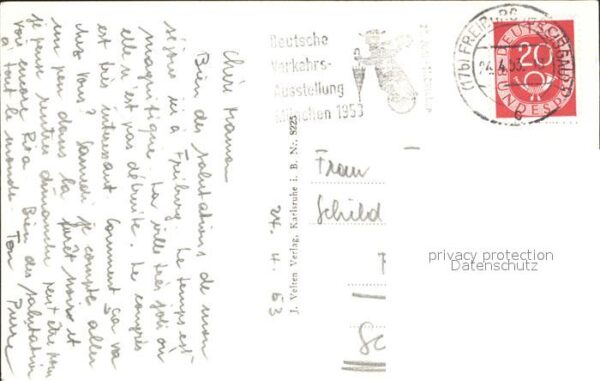 Chère Maman
Bien des salutations de mon
séjour ici à Freiburg. Le temps est
magnifique. La ville très joli où
elle n'est pas détruite. Le congrès
est très intéressant. Comment ça va
chez vous? Samedi je compte aller
un peu dans la forêt noire et
je pense rentrer dimanche. Peut être
voir encore Bien des salutations
à tout le monde Ton
Pierre
24. 4. 53
J. Velten Verlag, Karlsruhe i. B. Nr. 8225
Deutsche
Verkehrs-
Ausstellung
München 1953
(17b) FREIBURG
24.4.53
DEUTSCHE
BUNDESPOST
20
Frau
Schild
privacy protection
Datenschutz